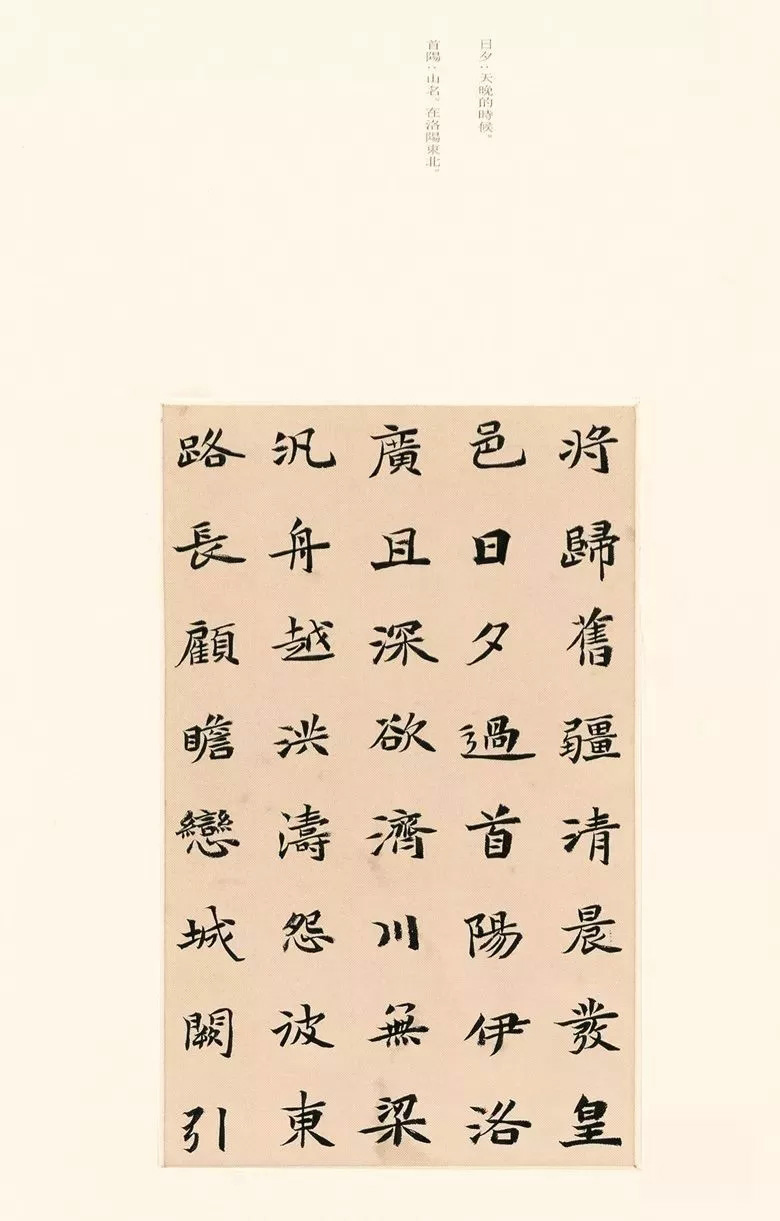 日夕：天晚的時候。
首陽：山名。在洛陽東北。
將歸舊疆清晨發皇
邑日夕過首陽伊洛
廣且深欲濟川無梁
汎舟越洪濤怨彼東
路長顧瞻戀城闕引